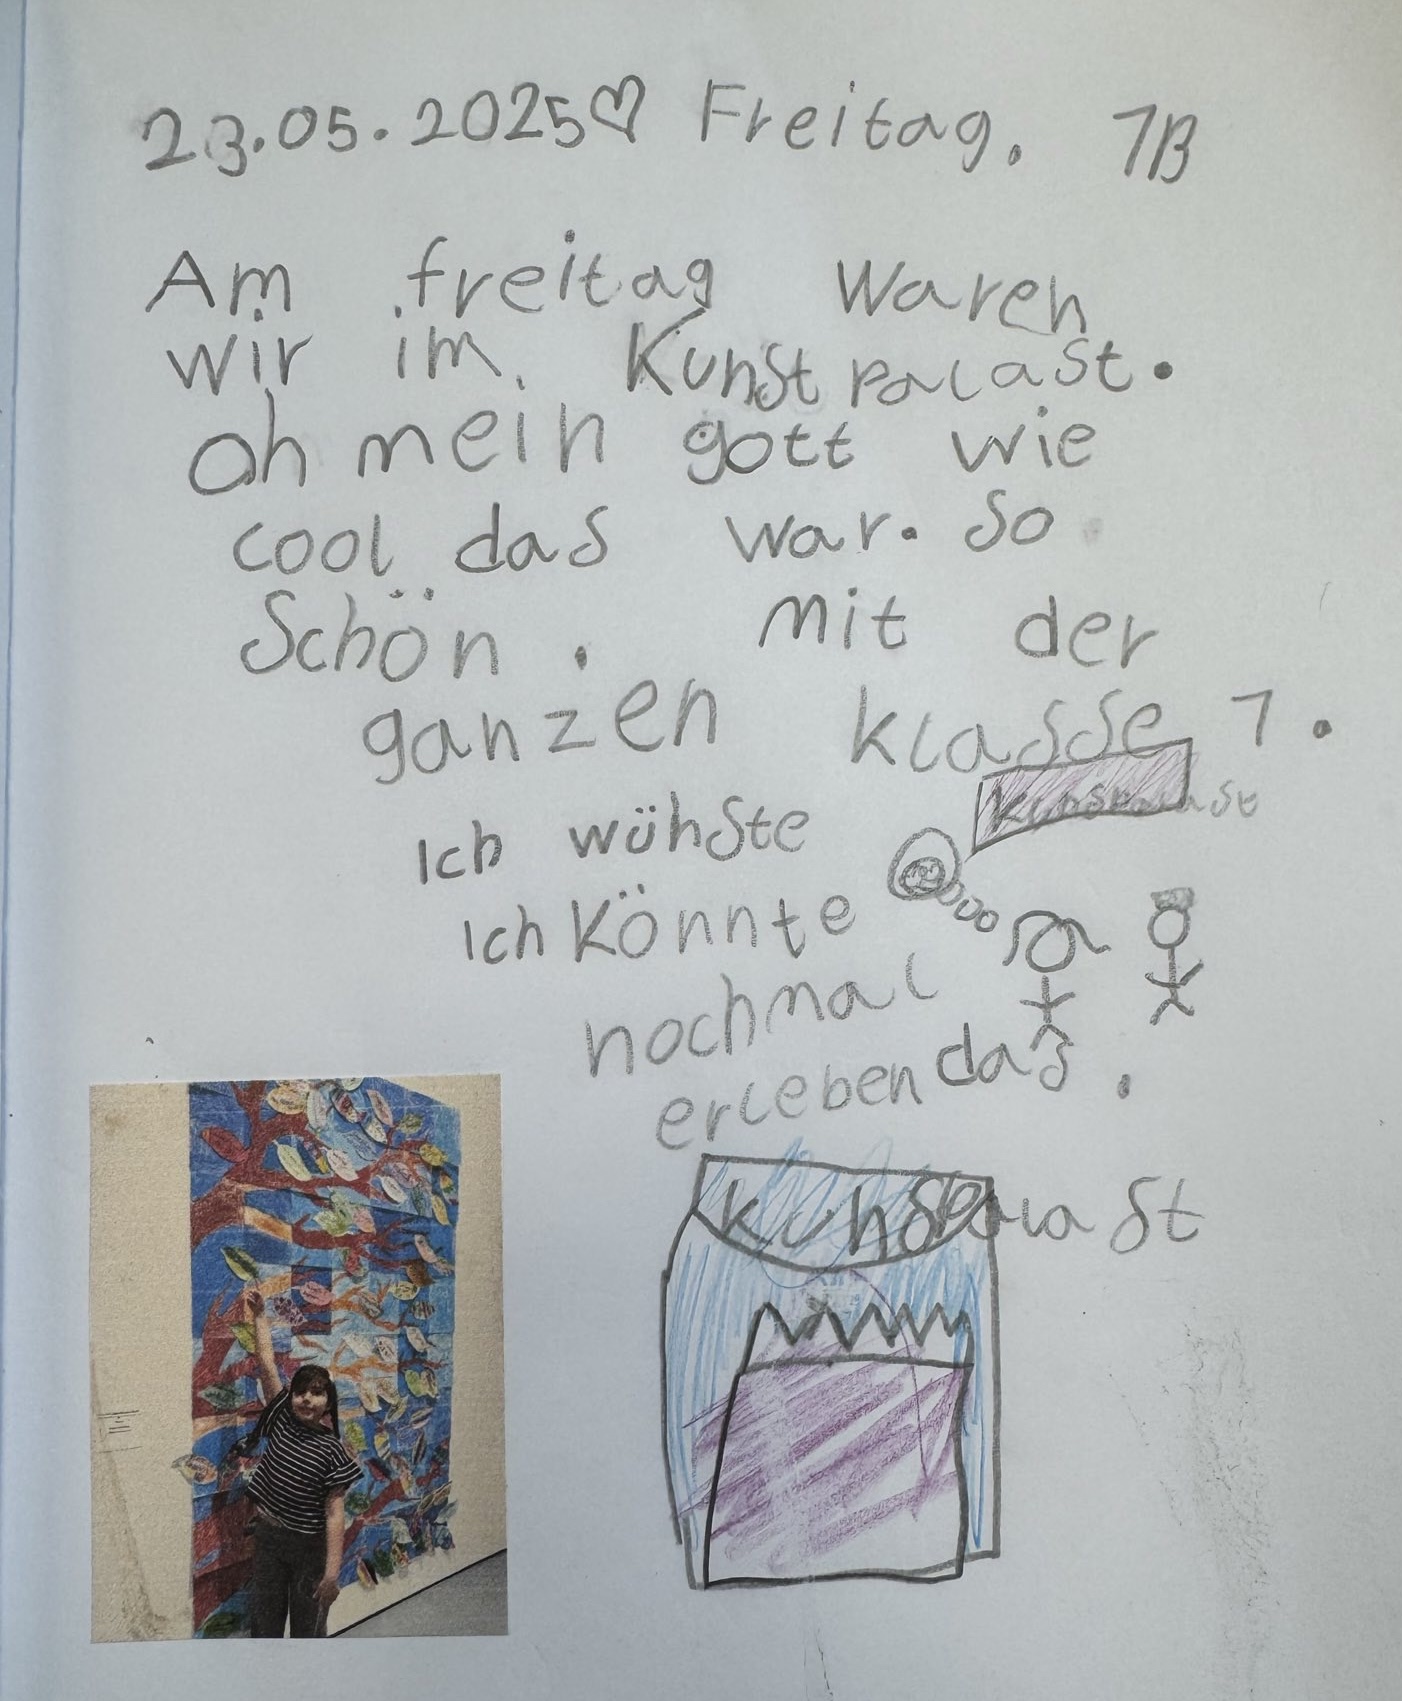 23.05.2025♡ Freitag. 1B
Am freitag Waren
wir im Kunst palast.
oh mein gott wie
cool das war. So
Schön. mit der
ganzen klasse 1.
Kunstpalast
Ich wühste
Ich Könnte
nochmal
erleben das.
kunspalast